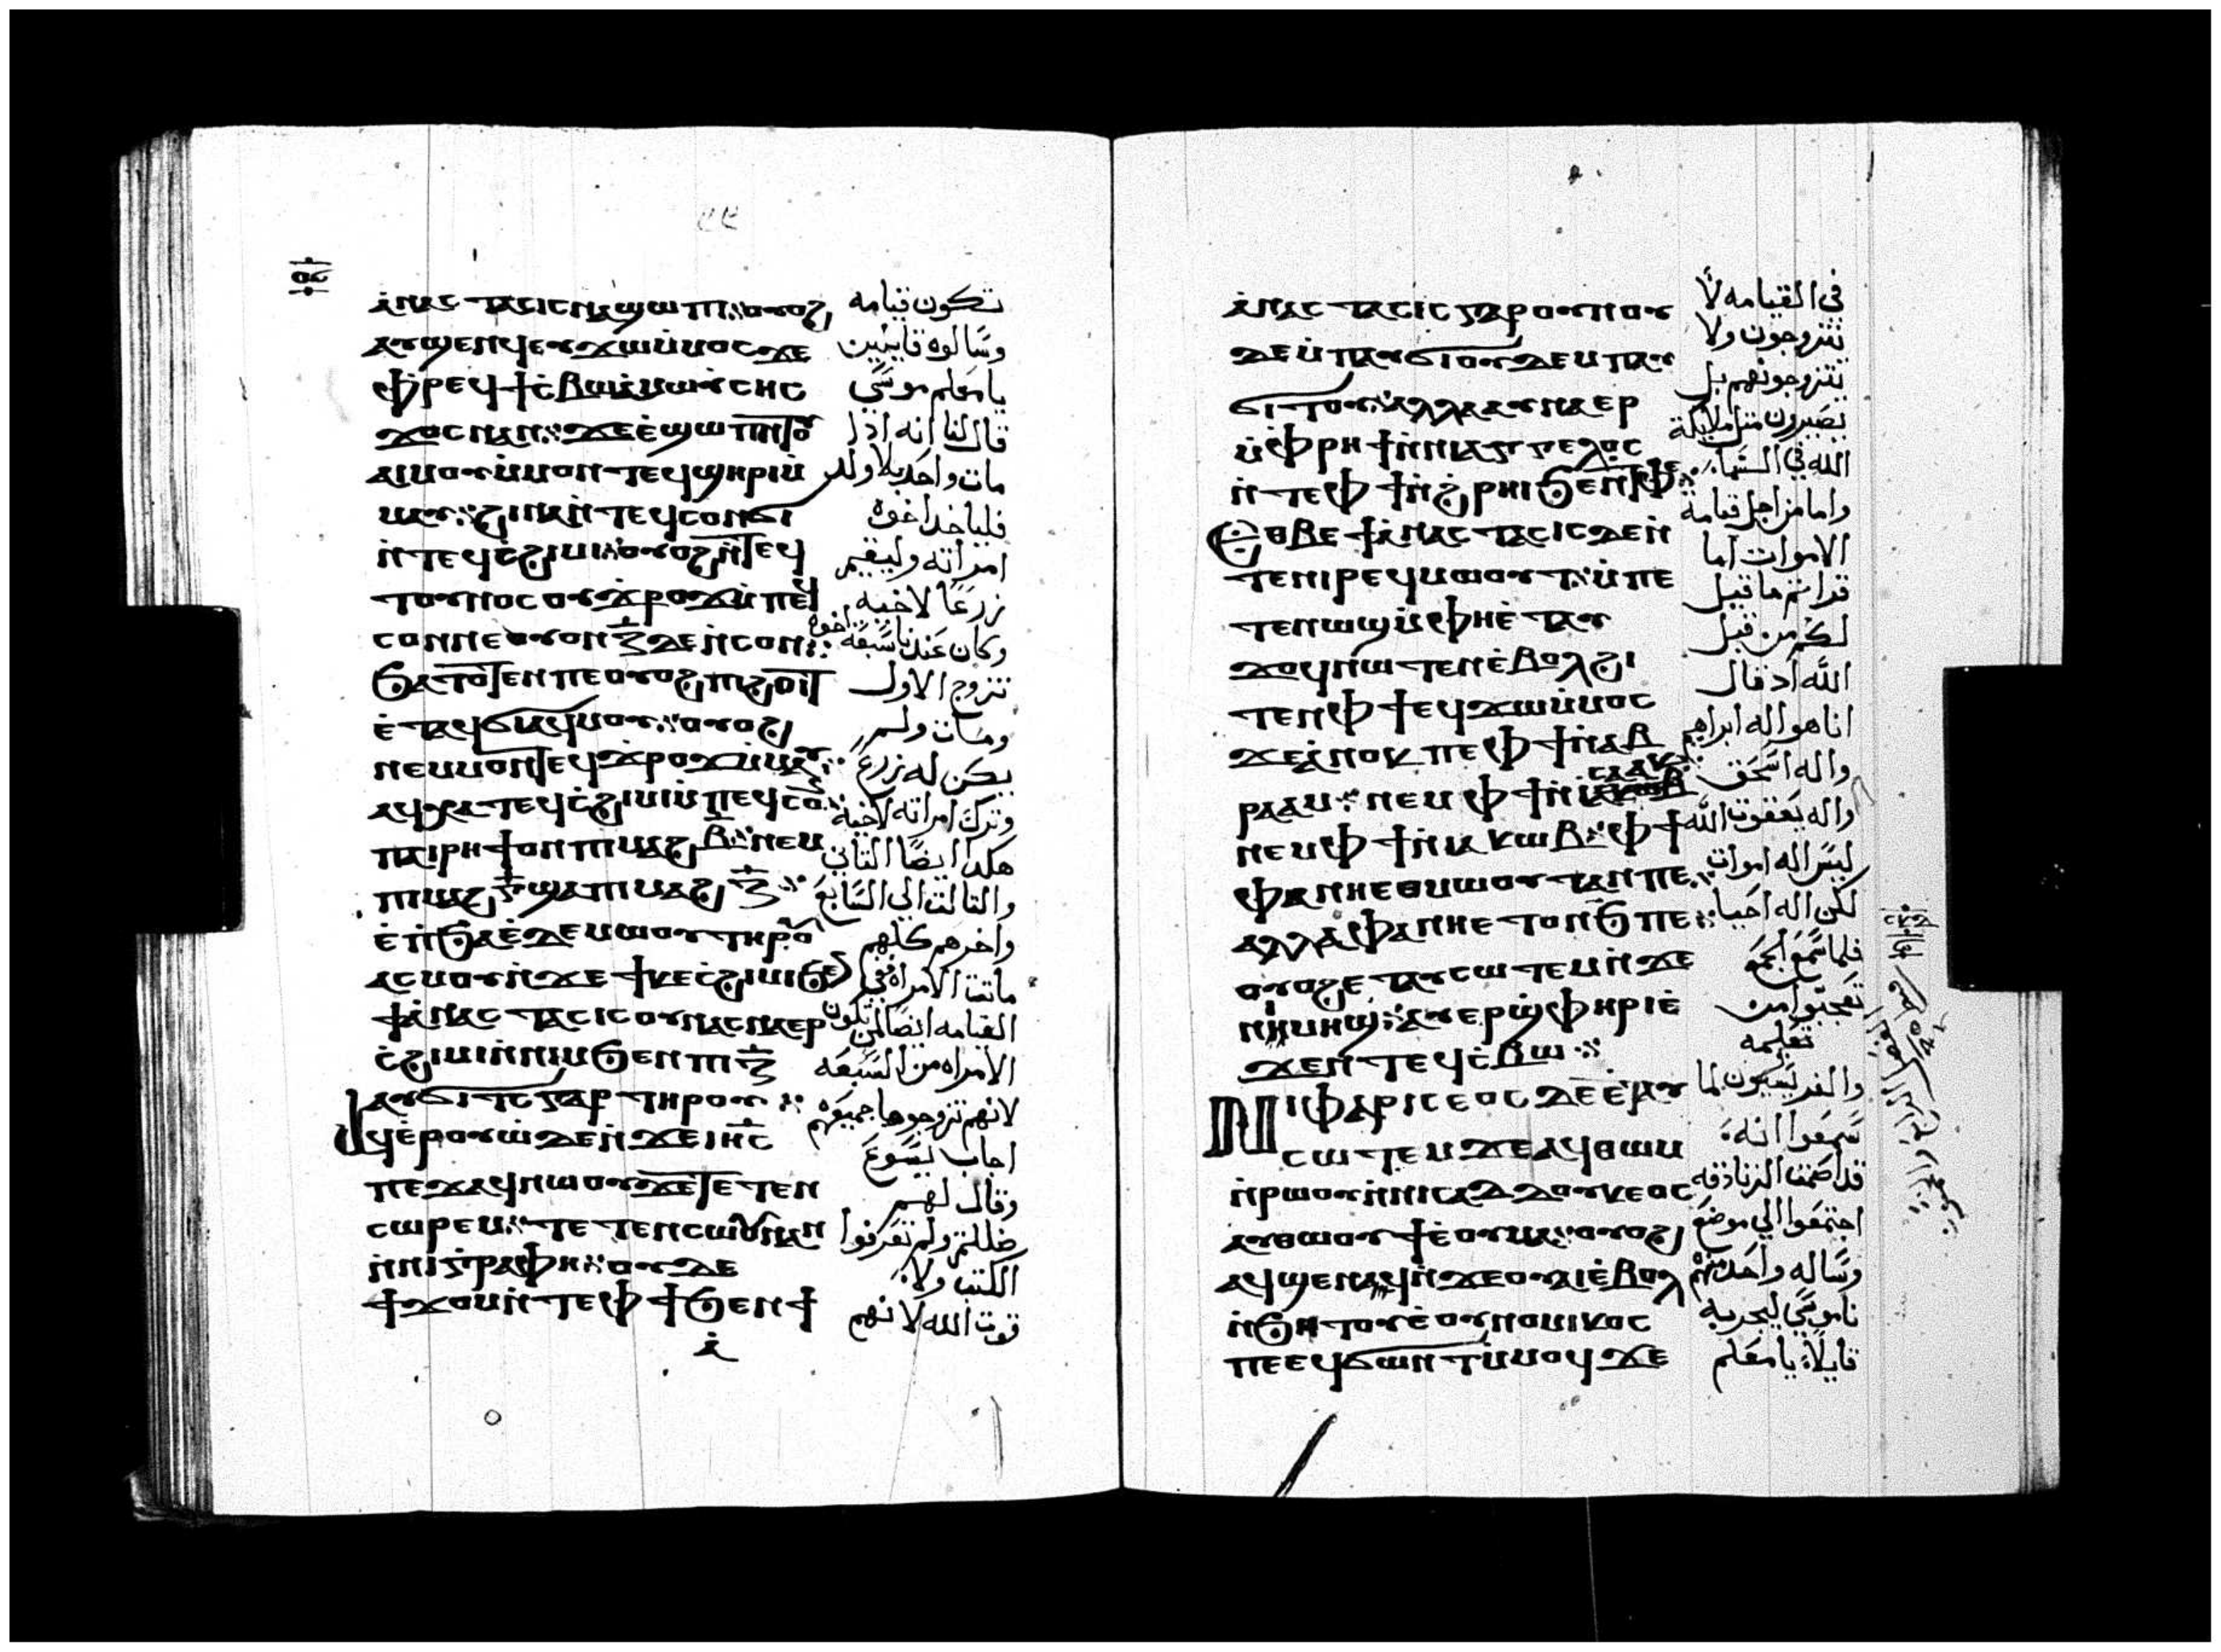 ⲁ̀ⲛⲁⲥⲧⲁⲥⲓⲥⲛⲁϣⲱⲡⲓ⁘ⲟⲩⲟϩ
ⲁⲩϣⲉⲛϥⲉⲩϫⲱⲙ̇ⲙⲟⲥϫⲉ
ⲫ̀ⲣⲉϥϯⲥ̀ⲃⲱⲙ̀ⲱⲩⲥⲏⲥ
ϫⲟⲥⲛⲁⲛ⁘ϫⲉⲉ̀ϣⲱⲡ
ⲁⲓⲙⲟⲩⲙ̇ⲙⲟⲛⲧⲉϥϣⲏⲣⲓⲙ̇
ⲙⲁⲩ⁘ϩⲓⲛⲁⲛ̇ⲧⲉϥⲥⲟⲛϭⲓ
ⲛ̇ⲧⲉϥⲥ̀ϩⲓⲙⲓ⁘ⲟⲩⲟϩⲛ̇ⲧⲉϥ
ⲧⲟⲩⲛⲟⲥⲟⲩϫ̀ⲣⲟϫⲙ̇ⲡⲉϥ
ⲥⲟⲛⲛⲉⲟⲩⲟⲛⲍ̅ⲇⲉⲛ̇ⲥⲟⲛ⁘
ϧⲁⲧⲟⲧⲉⲛⲡⲉⲟⲩⲟϩⲡⲓϩⲟⲩⲓⲧ
ⲉ̀ⲧⲁϥϭⲓⲁϥⲙⲟⲩ⁘ⲟⲩⲟϩ
ⲛⲉⲙⲙⲟⲛⲧⲉϥϫ̀ⲣⲟϫⲙ̇ⲙⲁⲩ⁘
ⲁϥⲭⲁⲧⲉϥⲥ̀ϩⲓⲙⲓⲙ̇ⲡⲉϥⲥⲟ̅
ⲡⲁⲓⲣⲏϯⲟⲛⲡⲓⲙⲁϩⲃ̅⁘ⲛⲉⲙ
ⲡⲓⲙⲁϩⲅ̅ϣⲁⲡⲓⲙⲁϩⲍ̅⁘
ⲉ̀ⲛ̇ϧⲁⲉ̀ⲇⲉⲙⲱⲟⲩⲧⲏⲣⲟⲩ
ⲁⲥⲙⲟⲩⲛ̇ϫⲉϯⲕⲉⲥ̀ϩⲓⲙⲓϧⲉ
ϯⲁ̀ⲛⲁⲥⲧⲁⲥⲓⲥⲟⲩⲛⲁⲥⲛⲁⲉⲣ
ⲥ̀ϩⲓⲙⲓⲛ̇ⲛⲓⲙϧⲉⲛⲡⲓⲍ̅
ⲁⲩϭⲓⲧⲥⲅⲁⲣⲧⲏⲣⲟⲩ⁘
ⲁϥⲉ̀ⲣⲟⲩⲱ̀ⲇⲉⲛ̇ϫⲉⲓⲏ̅ⲥ
ⲡⲉϫⲁϥⲛⲱⲟⲩϫⲉⲧⲉⲧⲉⲛ
ⲥⲱⲣⲉⲙ⁘ⲧⲉⲧⲉⲛⲥⲱⲟⲩⲛⲁⲛ
ⲛ̇ⲛⲓⲅ̀ⲣⲁⲫⲏ⁘ⲟⲩⲇⲉ
ϯϫⲟⲙⲛ̇ⲧⲉⲫϯϧⲉⲛϯ
ⲁ̀
تكون قيامه
وسالوه قايلين
يا معلم موسى
قال لنا انه اذا
مات واحد بلا ولد
فلياخذ اخوه
امراته وليقيم
زرعا لاخيه
وكان عندنا سبعه اخوه
تزوج الاول
ومات ولم
يكن له زرع
وترك امراته لاخيه
هكذا ايضا الثاني
والثالث الى السابع
واخرهم كلهم
ماتت الامراة في
القيامه ايضا لمن تكون
الامراه من السبعه
لانهم تزوجوها جميعهم
اجاب يسوع
وقال لهم
ضللتم ولم تعرفوا
الكتب ولا
قوت الله لانهم
ⲁ̀ⲛⲁⲥⲧⲁⲥⲓⲥⲅⲁⲣⲟⲩⲡⲟⲩ
ϫⲉⲙ̇ⲡⲁⲩϭⲓⲟⲩϫⲉⲙⲡⲁⲩ
ϭⲓⲧⲟⲩ⁘ⲁⲗⲗⲁⲁⲩⲛⲁⲉⲣ
ⲙ̇ⲫ̀ⲣⲏϯⲛ̇ⲛⲓⲁⲅⲅⲉⲗⲟⲥ
ⲛ̇ⲧⲉⲫϯⲛ̇ϩ̀ⲣⲏⲓϧⲉⲛⲧⲫⲉ⁘
ⲉⲑⲃⲉϯⲁ̀ⲛⲁⲥⲧⲁⲥⲓⲥⲇⲉⲛ̇
ⲧⲉⲛⲓⲣⲉϥⲙⲱⲟⲩⲧ⁘ⲙ̇ⲡⲉ
ⲧⲉⲛⲱϣⲙ̇ⲫⲏⲉ̀ⲧⲁⲩ
ϫⲟϥⲛⲱⲧⲉⲛⲉ̀ⲃⲟⲗϩⲓ
ⲧⲉⲛⲫϯⲉϥϫⲱⲙ̇ⲙⲟⲥ
ϫⲉⲁ̀ⲛⲟⲕⲡⲉⲫϯⲛ̇ⲁⲃ
ⲣⲁⲁⲙ⁘ⲛⲉⲙⲫϯⲛ̇ⲓⲥⲁⲁⲕ
ⲛⲉⲙⲫϯⲛ̇ⲓⲁⲕⲱⲃ⁘ⲫϯ
ⲫⲁⲛⲏⲉⲑⲙⲱⲟⲩⲧⲁⲛⲡⲉ⁘
ⲁⲗⲗⲁⲫⲁⲛⲏⲉⲧⲟⲛϧⲡⲉ⁘
ⲟⲩⲟϩⲉⲧⲁⲩⲥⲱⲧⲉⲙⲛ̇ϫⲉ
ⲛⲓⲙⲏϣ⁘ⲁⲩⲉⲣϣ̀ⲫⲏⲣⲓⲉ̀
ϫⲉⲛⲧⲉϥⲥ̀ⲃⲱ⁘
ⲛⲓⲫⲁⲣⲓⲥⲉⲟⲥⲇⲉⲉ̀ⲧⲁⲩ
ⲥⲱⲧⲉⲙϫⲉⲁϥⲑⲱⲙ
ⲛ̇ⲣⲱⲟⲩⲛ̇ⲛⲓⲥⲁⲇⲇⲟⲩⲕⲉⲟⲥ
ⲁⲩⲑⲱⲟⲩϯⲉ̀ⲟⲩⲙⲁ⁘ⲟⲩⲟϩ
ⲁϥϣⲉⲛϥⲛ̇ϫⲉⲟⲩⲁⲓⲉ̀ⲃⲟⲗ
ⲛ̇ϧⲏⲧⲟⲩⲉ̀ⲟⲩⲛⲟⲙⲓⲕⲟⲥ
ⲡⲉⲉϥϭⲱⲛⲧⲙ̇ⲙⲟϥϫⲉ
في القيامه لا
يتزوجون ولا
يتزوجونهم بل
يصيرون مثل ملايكة
الله في السماء
واما من اجل قيامة
الاموات اما
قراتم ما قيل
لكم من قبل
الله اذ قال
انا هو اله ابراهيم
واله اسحق
واله يعقوب الله
ليس اله اموات
لكن اله احيا
فلما سمع الجمع
تعجبوا من
تعليمه
والفريسيون لما
سمعوا انه
قد اصمت الزنادقه
اجتمعوا الى موضع
وساله واحد منهم
ناموسي ليجربه
قايلا يا معلم